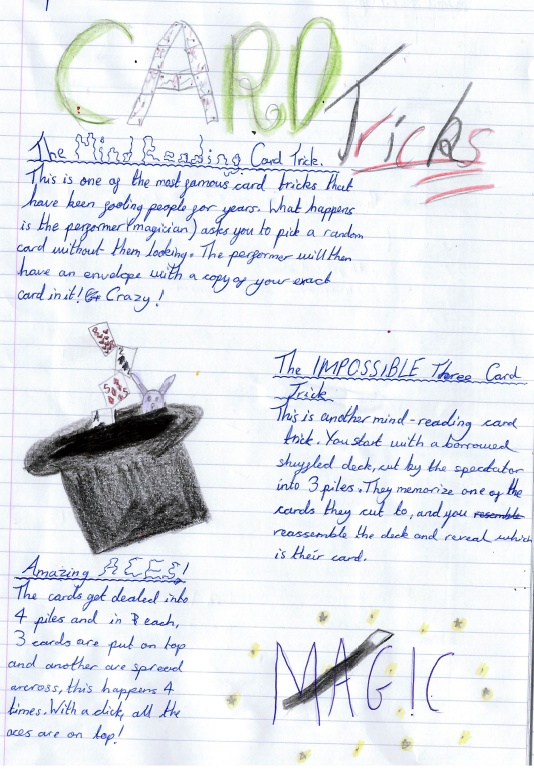 CARD
Tricks
The Mind Reading Card Trick.
This is one of the most famous card tricks that
have been fooling people for years. What happens
is the performer (magician) asks you to pick a random
card without them looking. The performer will then
have an envelope with a copy of your exact
card in it! Crazy!
The IMPOSSIBLE Three Card
Trick
This is another mind-reading card
trick. You start with a borrowed
shuffled deck, cut by the spectator
into 3 piles. They memorize one of the
cards they cut to, and you resemble
reassemble the deck and reveal which
is their card.
Amazing ACES!
The cards get dealed into
4 piles and in each,
3 cards are put on top
and another are spread
arcross, this happens 4
times. With a click, all the
aces are on top!
MAGIC